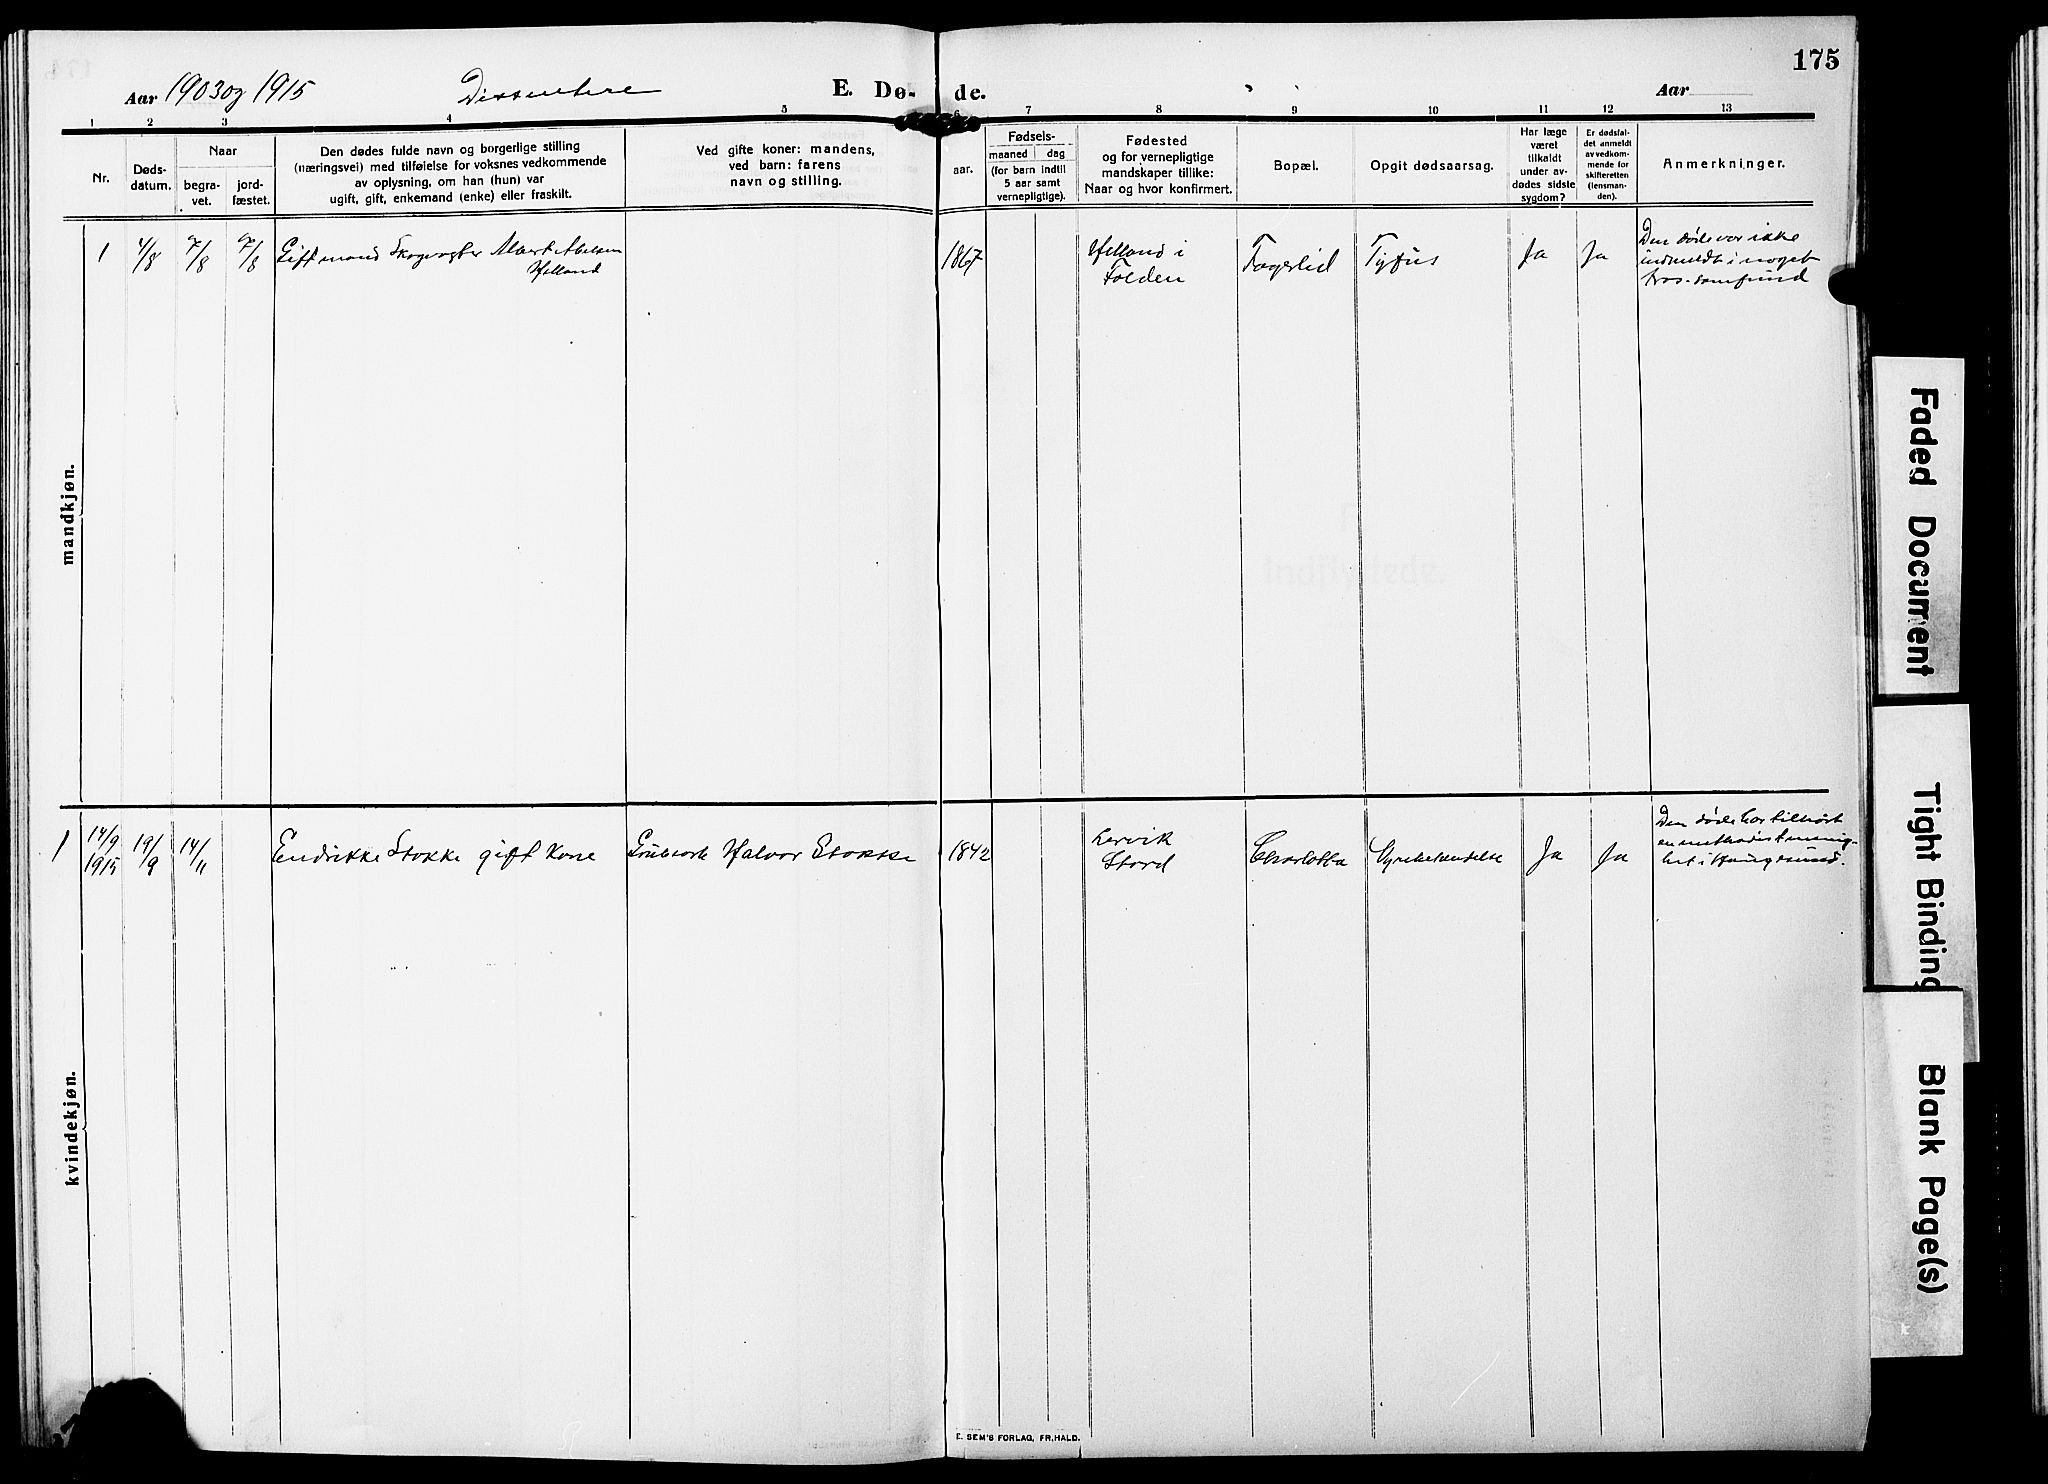 175
Aar 1903 og 1915 Dissentere E. Dø- de. Aar
1 2 3 4 5 6 7 8 9 10 11 12 13
Nr.
Døds-
datum.
Naar
begra-
vet.
jord-
fæstet.
Den dødes fulde navn og borgerlige stilling
(næringsvei) med tilføielse for voksnes vedkommende
av oplysning, om han (hun) var
ugift, gift, enkemand (enke) eller fraskilt.
Ved gifte koner: mandens,
ved barn: farens
navn og stilling.
aar.
Fødsels-
maaned dag
(for barn indtil
5 aar samt
vernepligtige).
Fødested
og for vernepligtige
mandskaper tillike:
Naar og hvor konfirmert.
Bopæl.
Opgit dødsaarsag.
Har læge
været
tilkaldt
under av-
dødes sidste
sygdom?
Er dødsfal-
det anmeldt
av vedkom-
mende for
skifteretten
(lensman-
den).
Anmerkninger.
mandkjøn.
1 4/8 7/8 7/8 Gift mand Skogvogter Albert Abelsen
Helland
1867
Helland i
Folden
Fagerlid
Tyfus
Ja
Ja
Den døde var ikke
indmeldt i noget
tros-samfund
kvindekjøn.
1 14/9
1915
19/9 14/11 Endrikke Stokke gift kone
Halvor Stokke
1842
Lervik
Stord
Charlotta
Ja
Ja
Den døde har tilhørt
en methodistmenig-
het i Haugesund.
E. SEM'S FORLAG, FR,HALD.
Faded Document
Tight Binding
Blank Page(s)